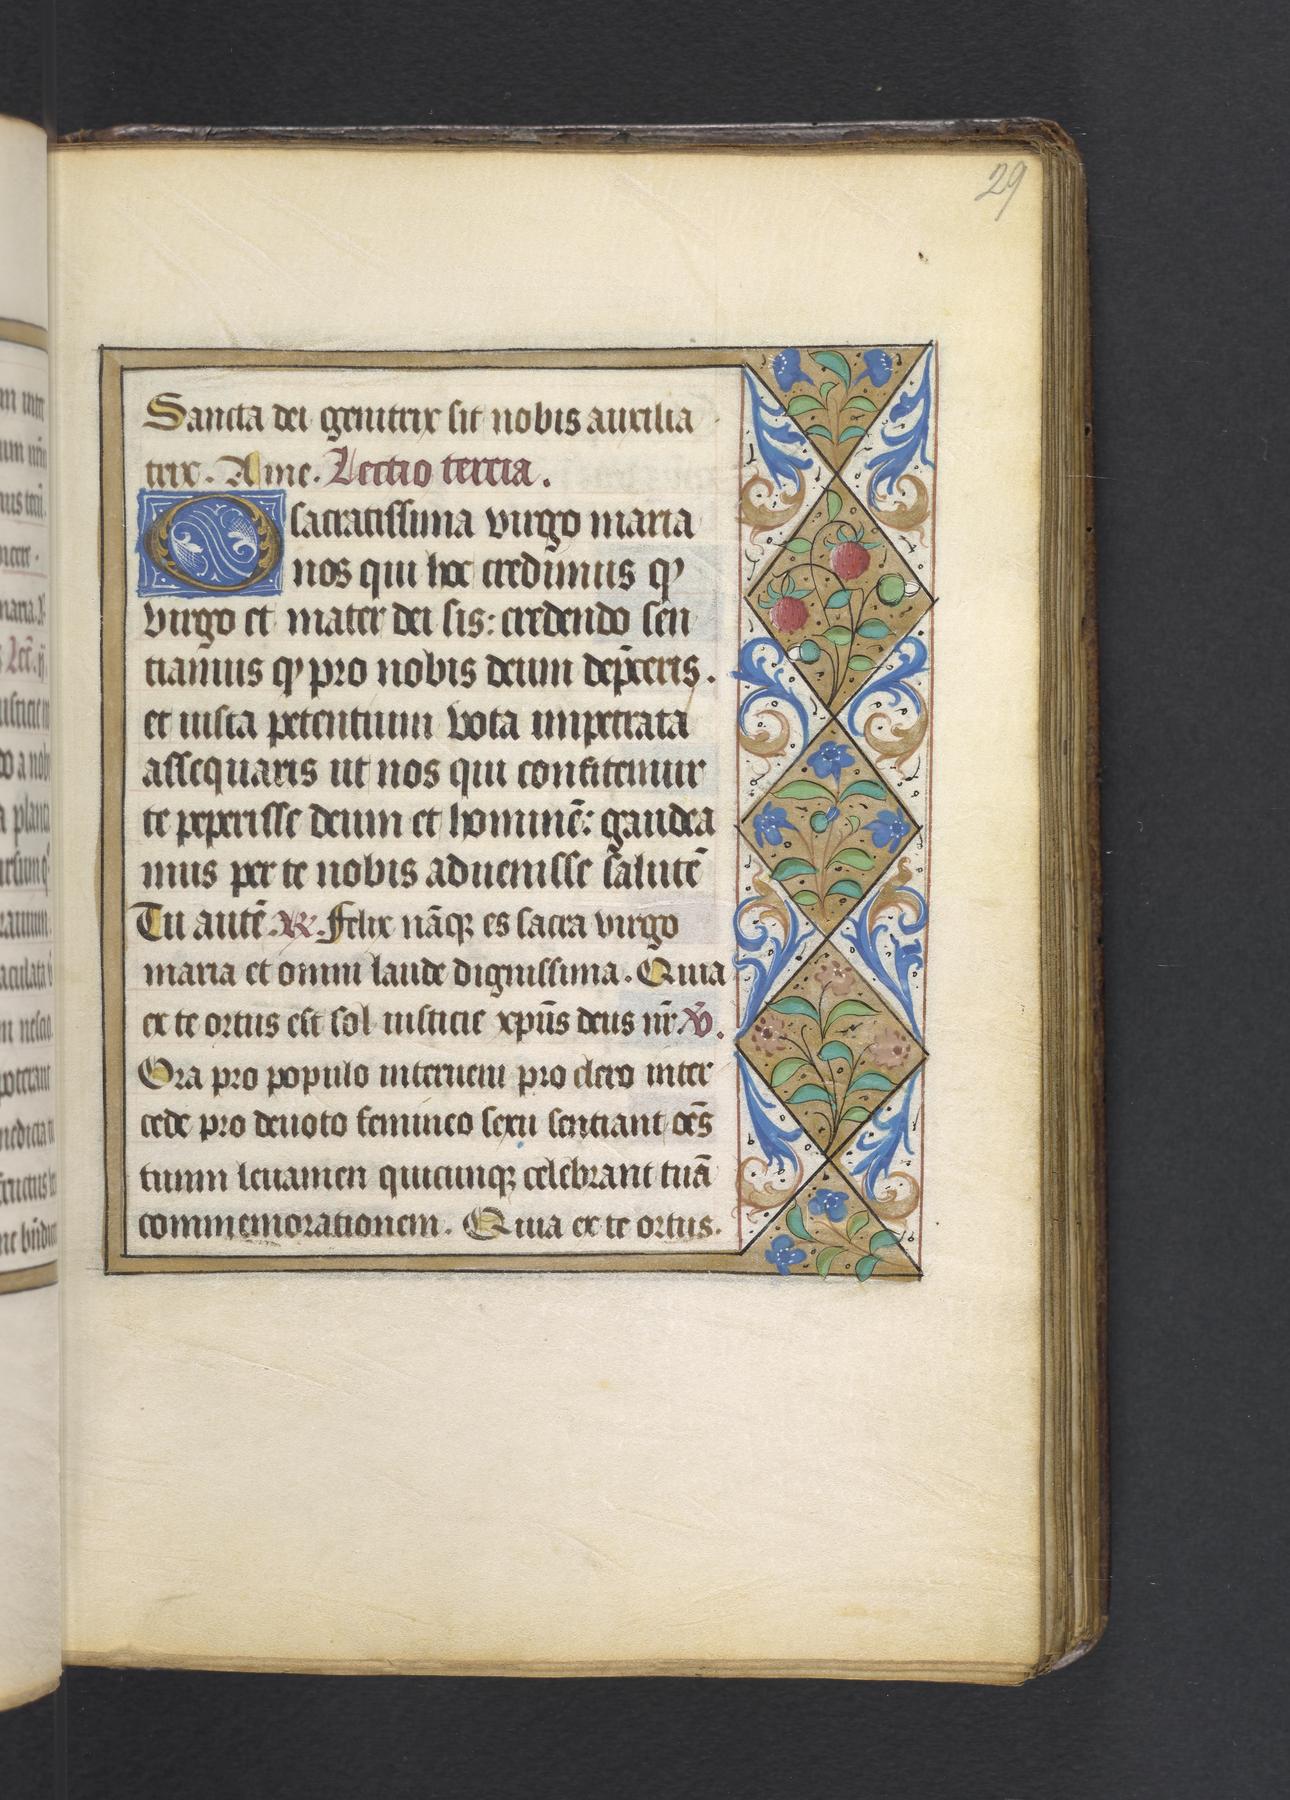 29
Sancta dei genitrix sit nobis auxilia
trix. Ame. Lectio tercia.
O sacratissima virgo maria
nos qui hoc credimus qͥ
virgo et mater dei sis: credendo sen
tiamus qͥ pro nobis deum dep̄ceris.
et iusta petentium vota impetrata
assequaris ut nos qui confitemur
te peperisse deum et hominē: gaudea
mus per te nobis aduenisse salutē
Tu autē. ℟. Felix nāqꝫ es sacra virgo
maria et omni laude dignissima. Quia
ex te ortus est sol iusticie xp̄us deus nr̄. ℣.
Ora pro populo interueni pro clero inter
cede pro deuoto femineo sexu sentiant oēs
tuum leuamen quicunqꝫ celebrant tuā
commemorationem. Quia ex te ortus.